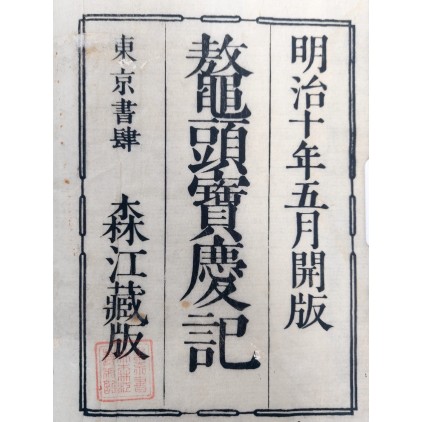 明治十年五月開版
鼇頭寶慶記
東京書肆 森江藏版